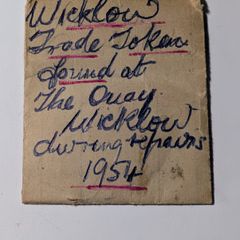 Wicklow
Trade Token
found at
The Quay
Wicklow
durring repairs
1954